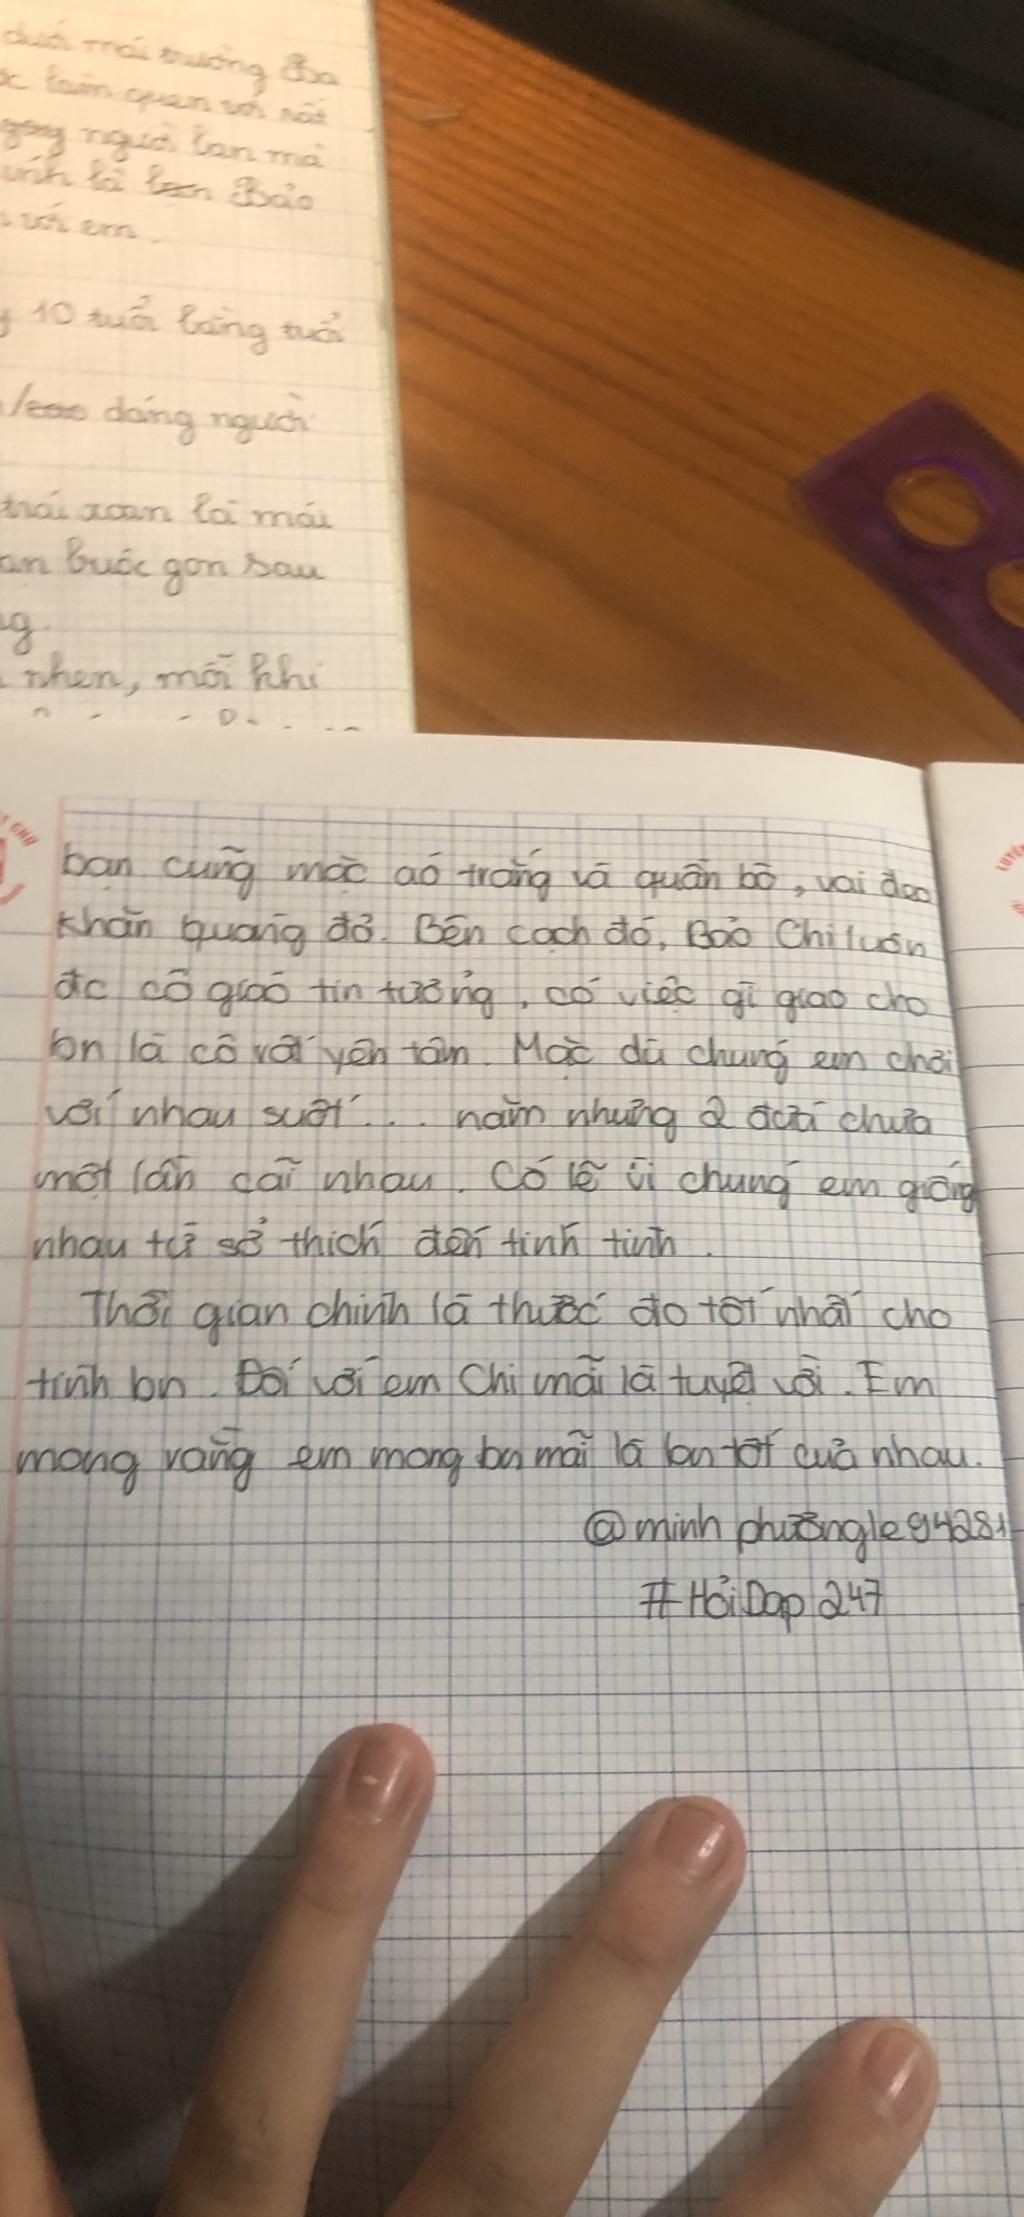 dưới mái trường Ba
làm quen với rất
người bạn mà
là Bảo
với em.
10 tuổi bằng tuổi
dáng người
trái xoan là mái
buộc gọn sau
nhen, mỗi khi
bạn cũng mặc aó trắng và quần bò, vai đeo
khăn quàng đỏ. Bên cạch đó, Bảo Chi luôn
đc cô giaó tin tưởng, có việc gì giao cho
bn là cô rất yên tâm. Mặc dù chúng em chơi
với nhau suốt ... năm nhưng 2 đứa chưa
một lần cãi nhau. Có lẽ vì chúng em giống
nhau từ sở thích đến tính tình.
Thời gian chính là thước đo tốt nhất cho
tình bn. Đối với em Chi mãi là tuyệt vời. Em
mong rằng em mong bn mãi là bn tốt cuả nhau.
@minh phươngle94281
#HỏiDap 247